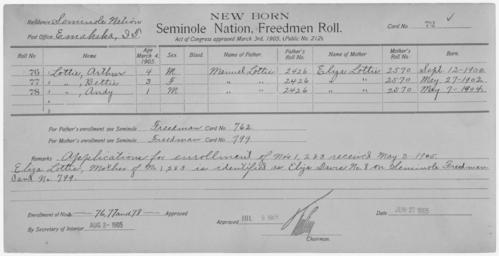 NEW BORN
Residence Seminole Nation
Seminole Nation, Freedmen Roll.
Card No. 72
Post Office,
Act of Congress approved March 3rd, 1905, (Public No. 212).
Roll No. Name Age March 4, 1905. Sex. Blood Name of Father. Father's Roll No. Name of Mother Mother's Roll No. Born.
76 Lottie, Arthur 4 M Manuel Lottie 2426 Eliza Lottie 2570 Sept. 12-1900.
77 " , Bettie 3 F " " 2426 " " 2570 May-27-1902.
78 " , Andy 1 M " " 2426 " " 2570 May 7-1904.
For Father's enrollment see Seminole Freedman Card No. 762
For Mother's enrollment see Seminole Freedman Card No. 799
Remarks Applications for enrollment of Nos 1, 2 & 3 received May 2 1905.
Eliza Lottie, Mother of No 1, 2 & 3 is identified as Davis No. 8 on Seminole Freedman
Card No. 799.
Enrollment of Nos 76, 77 and 78 Approved
By Secretary of Interior AUG 2-1905
Approved 1905
Chairman.
JUN 27 1905